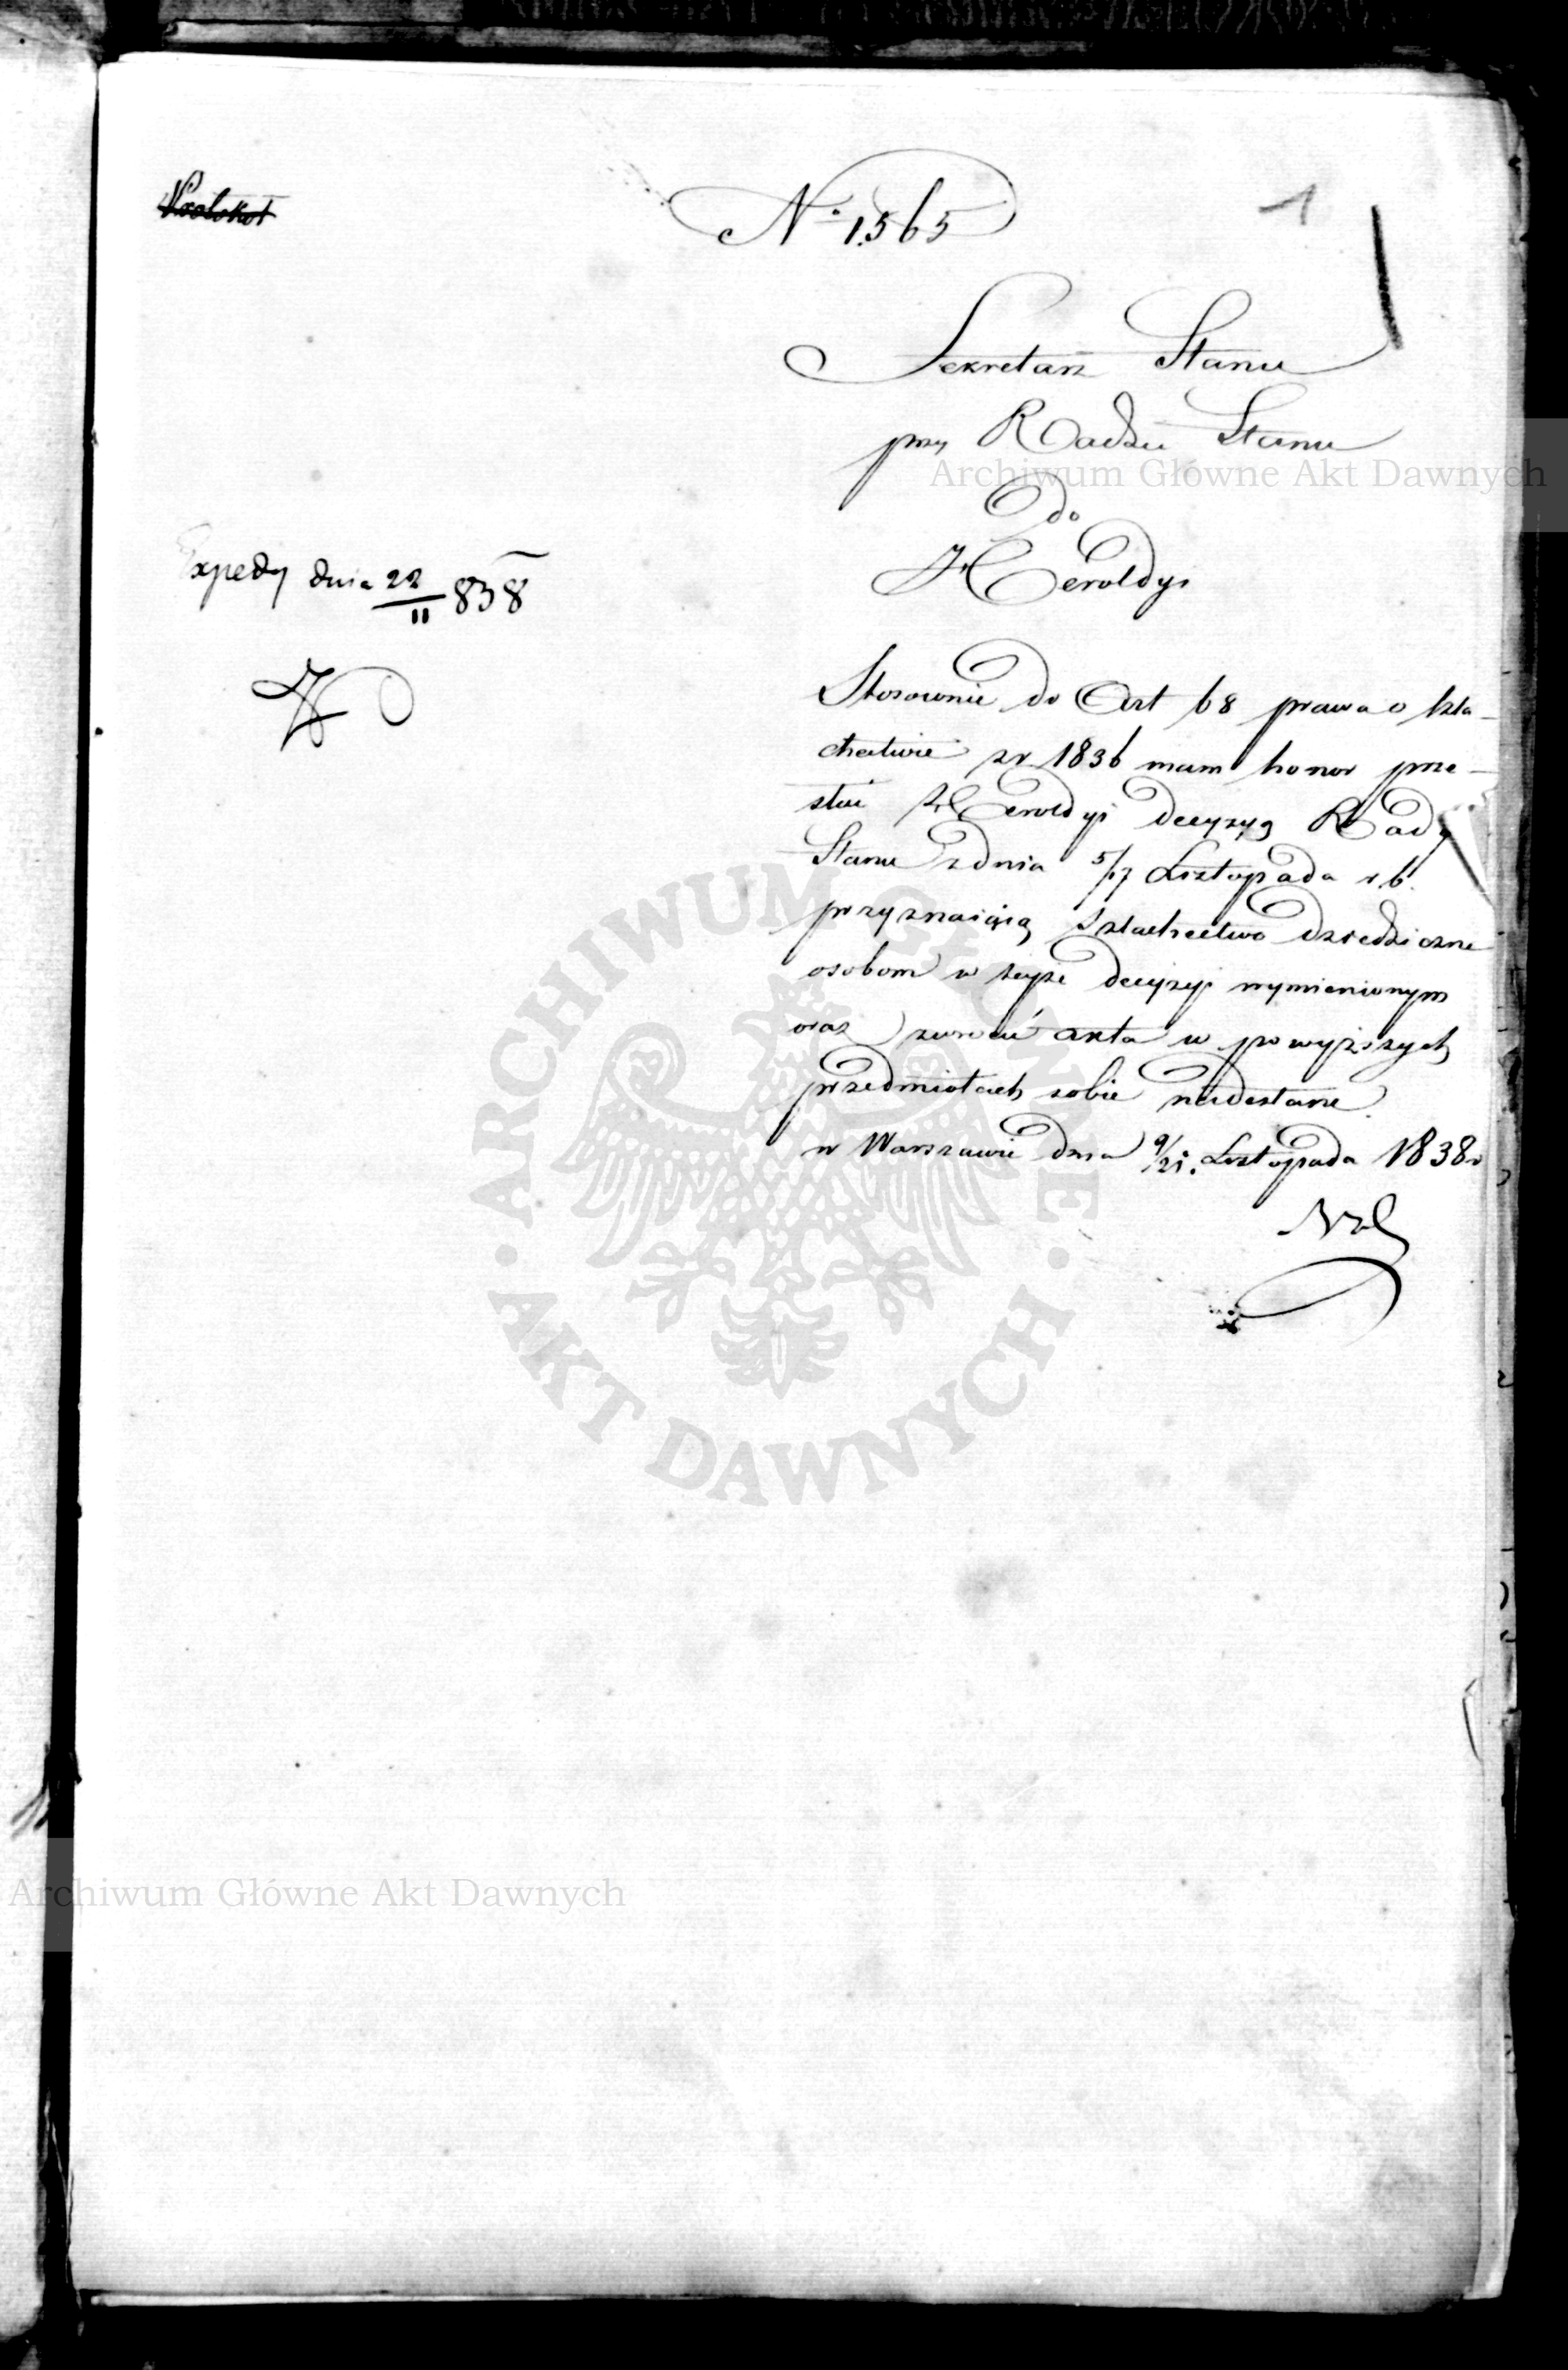 Protokół
Nº 1565
1
Sekretarz Stanu
przy Radzie Stanu
do
Heroldyi
Expedy dnia 22/11 838
Stosownie do Art 68 prawa o szla-
chectwie z r 1836 mam honor prze-
słać Heroldyi decyzyą Rady
Stanu z dnia 5/17 Listopada r b.
przyznaiącą Szlachectwo dziedziczne
osobom w teyże decyzyi wymienionym
oraz zwrócić akta w powyższych
przedmiotach sobie nadesłane.
w Warszawie dnia 9/21. Listopada 1838 r
Archiwum Główne Akt Dawnych
ARCHIWUM GŁÓWNE • AKT DAWNYCH •
Archiwum Główne Akt Dawnych